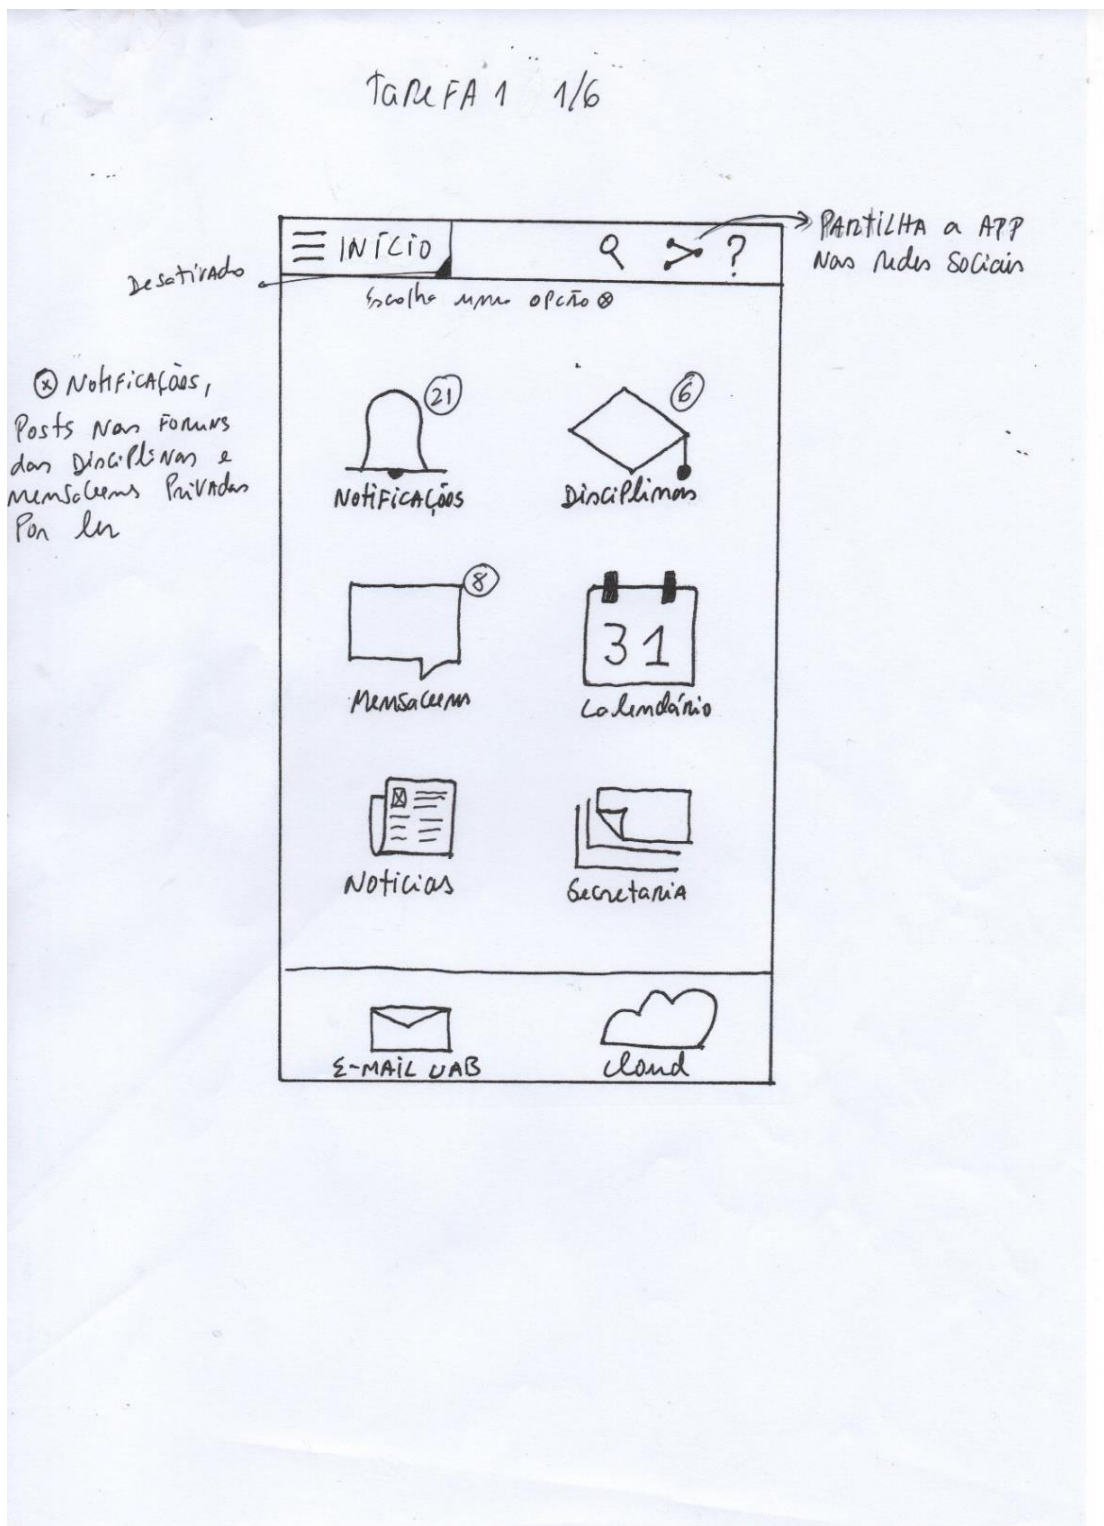 Tarefa 1 1/6
INÍCIO
?
Partilha a App
nas redes sociais
Desativado
Escolha uma opção ⊗
⊗ Notificações,
Posts nos Foruns
das Disciplinas e
Mensagens Privadas
Por ler
21
6
Notificações
Disciplinas
8
31
Mensagens
Calendário
Noticias
Secretaria
E-MAIL UAB
Cloud